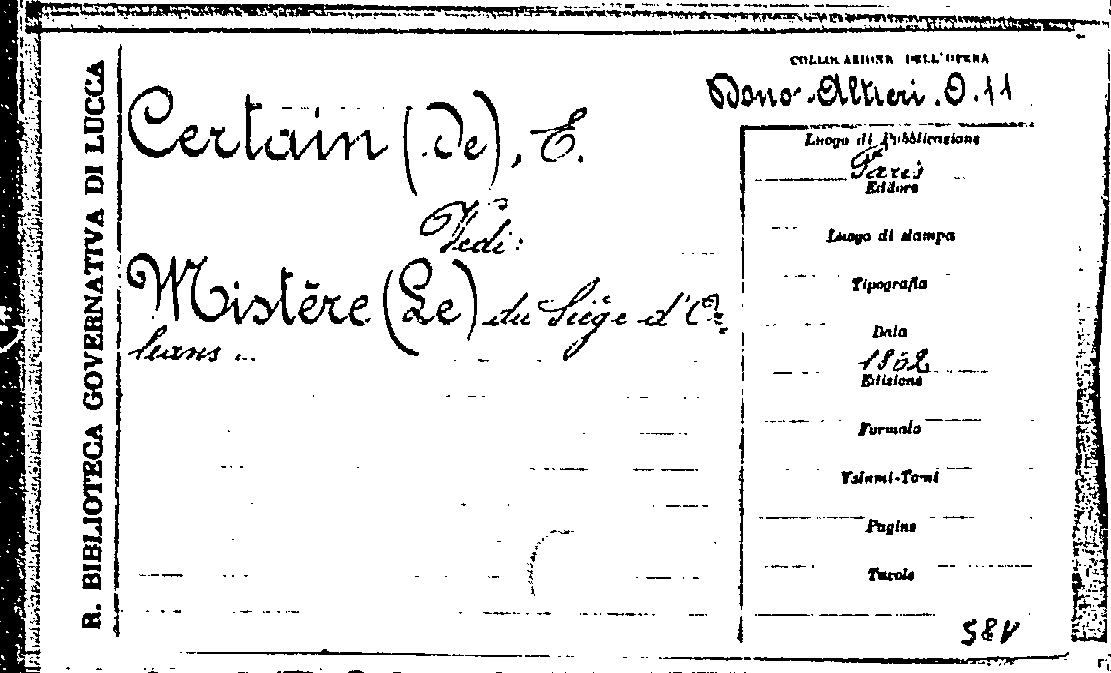 R. BIBLIOTECA GOVERNATIVA DI LUCCA
COLLOCAZIONE DELL'OPERA
Dono Altieri. O. 11
Certain (De), E.
Vedi:
Mistère (Le) du Siège d'Or
leans ...
Luogo di Pubblicazione
Paris
Editore
Luogo di stampa
Tipografia
Data
1862
Edizione
Formato
Volumi-Tomi
Pagine
Tavole